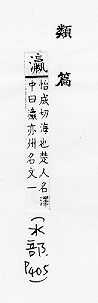 類篇
瀛
怡成切海也楚人名澤
中曰瀛亦州名文一
(水部.
P405)